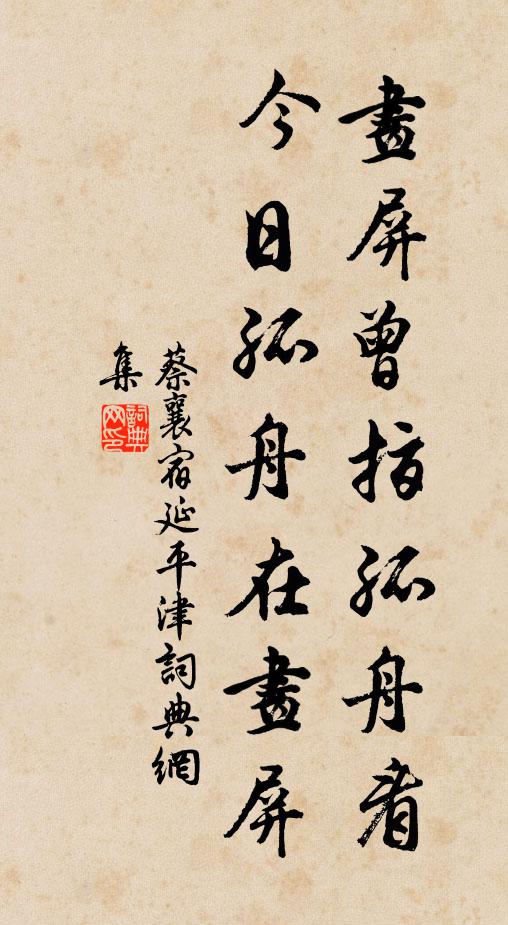 畫屏曾指孤舟看
今日孤舟在畫屏
蔡襄宿延平津詞典網
集
詞典网印